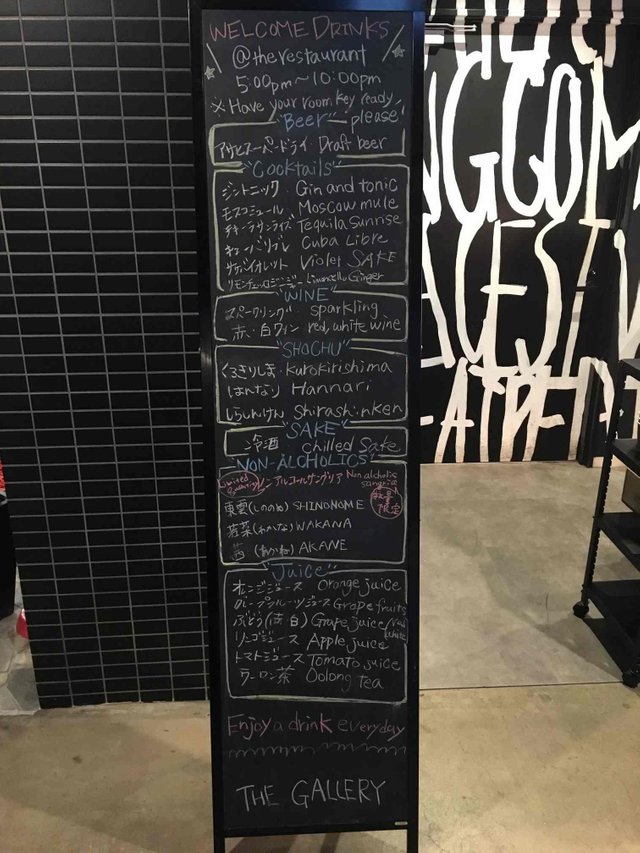 WELCOME DRINKS
@the restaurant
5:00pm～10:00pm
※Have your room key ready, please!
"Beer"
アサヒスーパードライ・Draft beer
"Cocktails"
ジントニック・Gin and tonic
モスコミュール・Moscow mule
テキーラサンライズ Tequila sunrise
キューバリブレ Cuba Libre
サケバイオレット Violet SAKE
リモンチェッロジンジャー Limoncello Ginger
"WINE"
スパークリング・sparkling
赤・白ワイン red, white wine
"SHOCHU"
くろきりしま・kurokirishima
はんなり Hannari
しらしんけん Shirashinken
"SAKE"
冷酒 chilled Sake
"NON-ALCHOLICS"
Limited quantity ノンアルコールサングリア Non alcoholic sangria
数量限定
東雲(しののめ) SHINONOME
若菜(わかな) WAKANA
茜(あかね) AKANE
"Juice"
オレンジジュース Orange juice
グレープフルーツジュース Grape fruits
ぶどう(赤・白) Grape juice (red/white)
リンゴジュース Apple juice
トマトジュース Tomato juice
ウーロン茶 Oolong tea
Enjoy a drink everyday
THE GALLERY